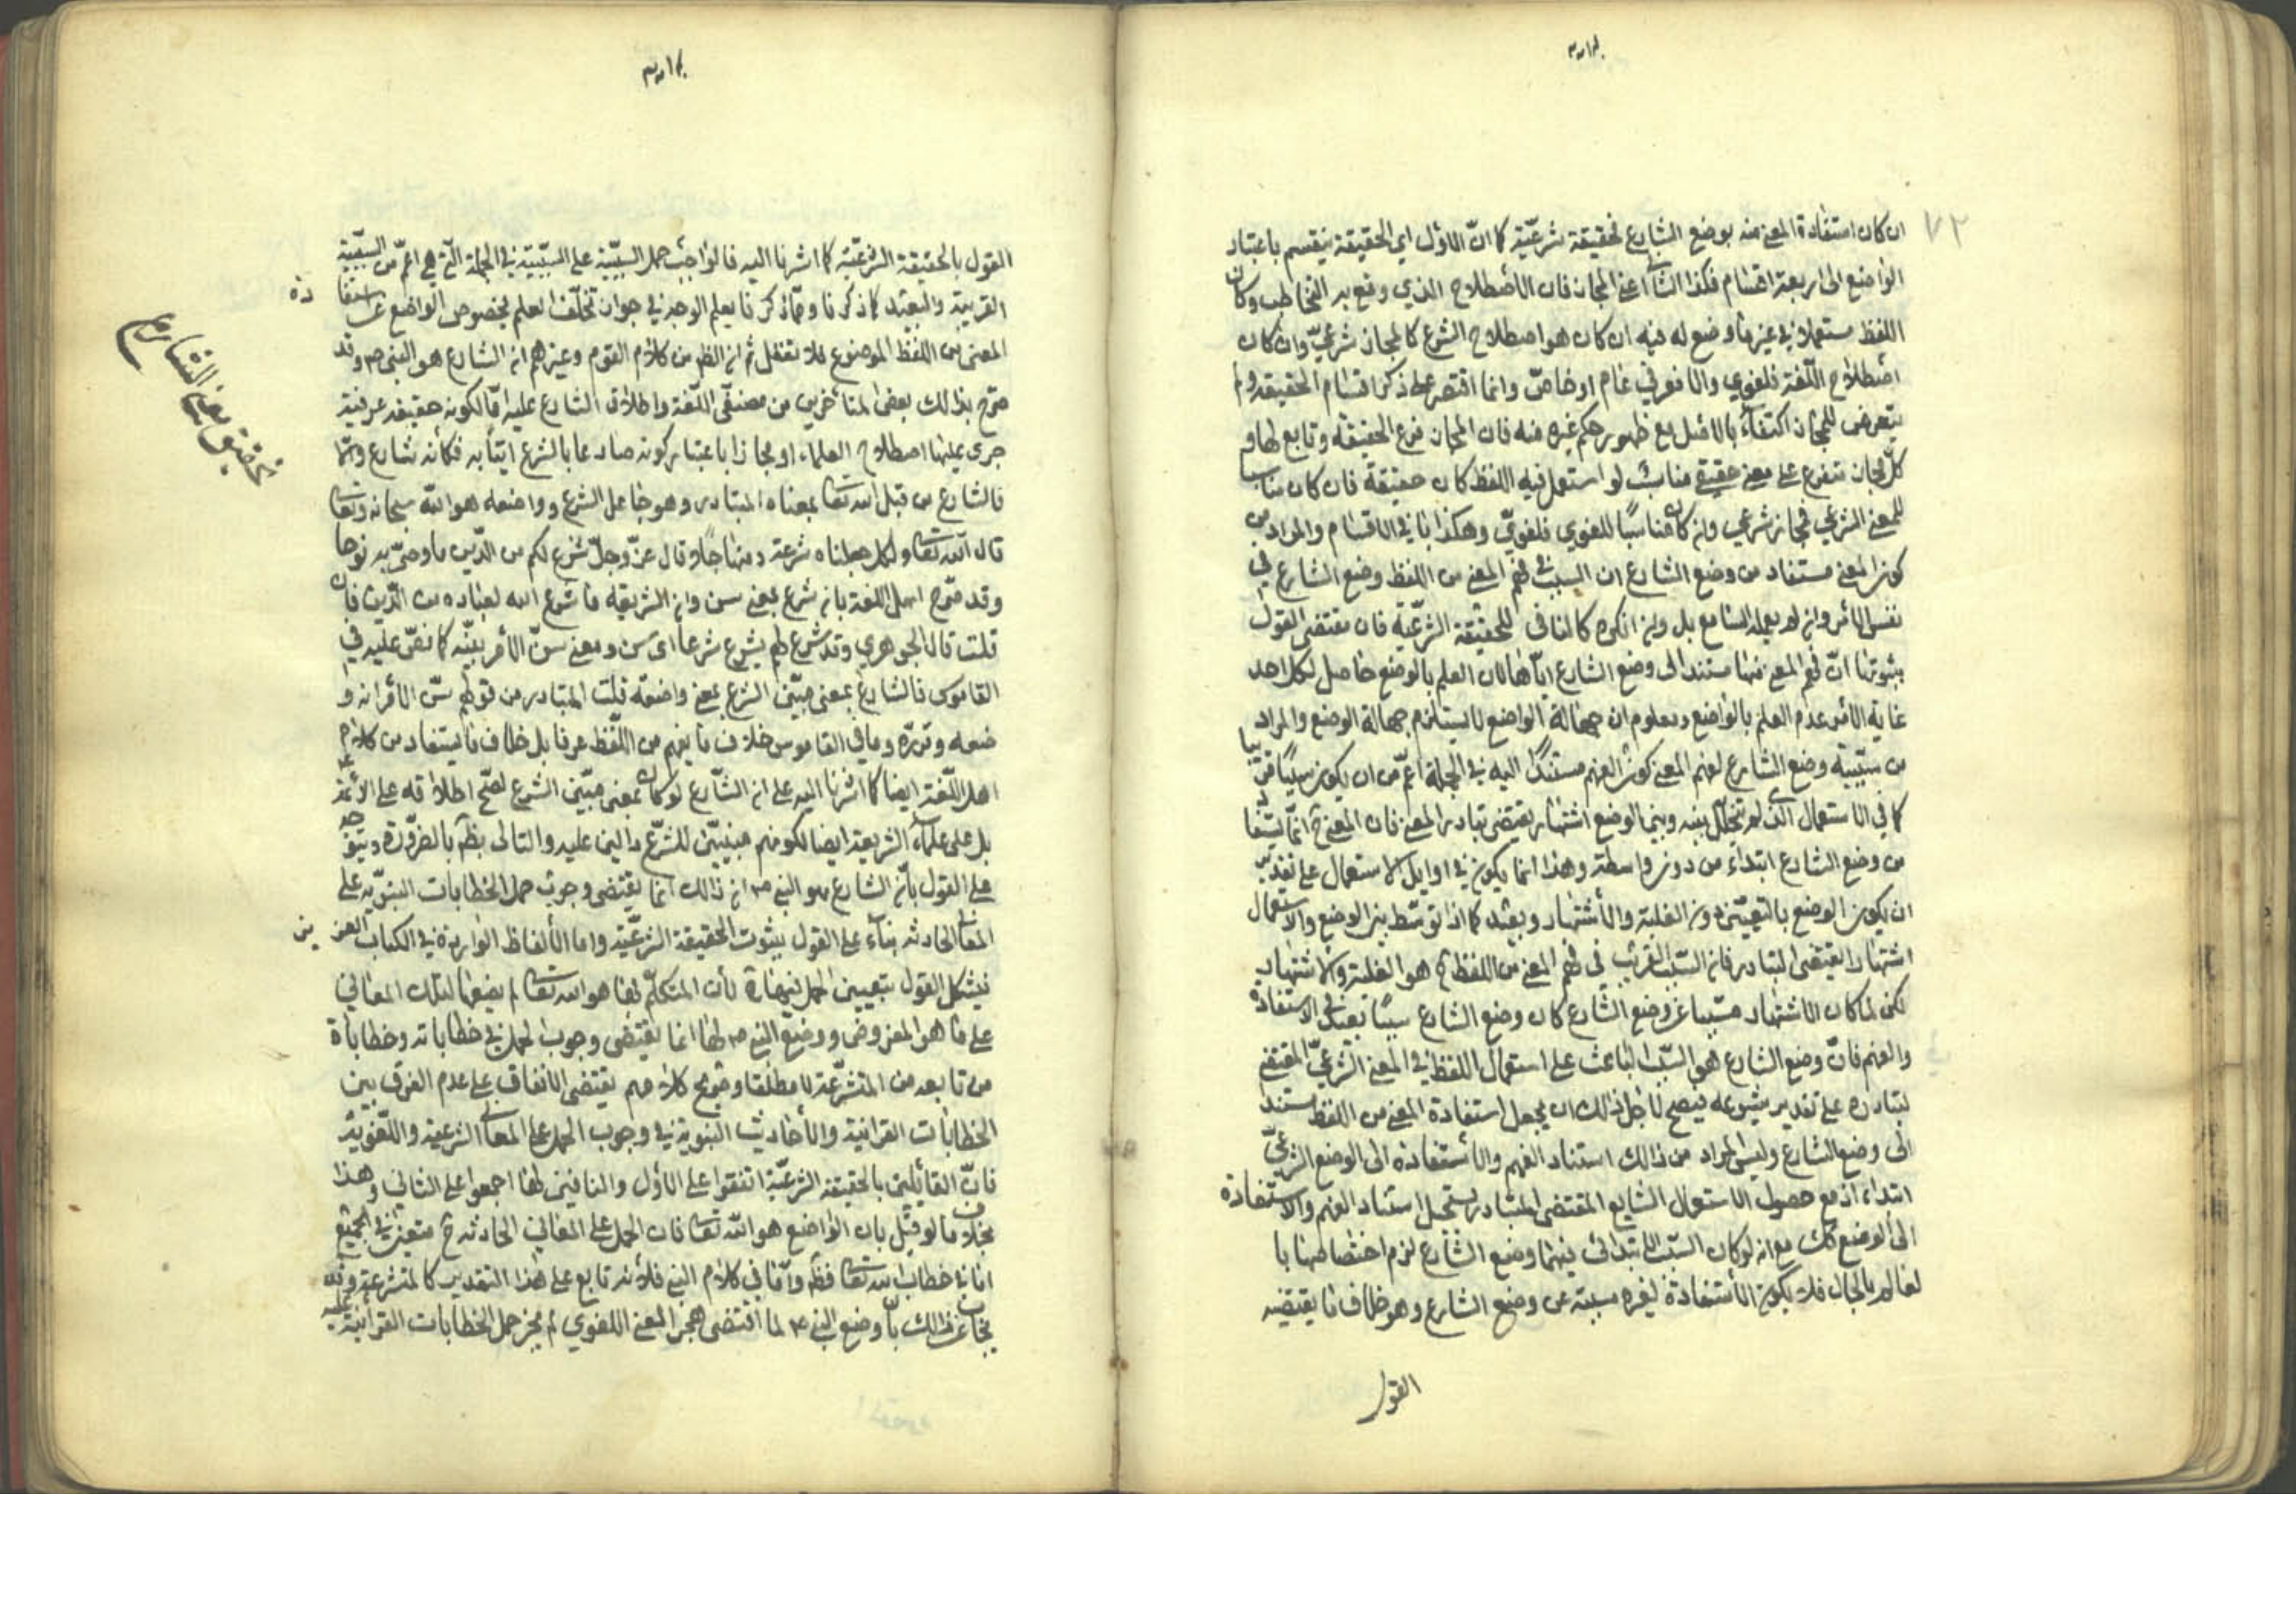 ٧٢
ان كان استفادة المعنى منه بوضع الشارع فحقيقة شرعيّة كما انّ الاوّل اي الحقيقة ينقسم باعتبار
الواضع الى اربعة اقسام فكذا الثاني اعني المجاز فان الاصطلاح الذي وقع به التخاطب وكان
اللفظ مستعملا في غير ما وضع له فيه ان كان هو اصطلاح الشرع كا لمجاز شرعيّ وان كان
اصطلاح اللّغة فلغوي والا فعرفي عام او خاصّ وانما اقتصر على ذكر اقسام الحقيقة ولم
يتعرض للمجاز اكتفاءً بالاصل مع ظهور حكم غيره منه فان المجاز فرع الحقيقة وتابع لها و
كلّ مجاز متفرع على معنى حقيقي مناسب لو استعمل فيه اللفظ كان حقيقة فان كان مناسبا
للمعنى الشرعي فمجاز شرعي وان كان مناسبًا للغوي فلغويّ وهكذا باقي الاقسام والمراد من
كون المعنى مستفاد من وضع الشارع ان السبب في فهم المعنى من اللفظ وضع الشارع في
نفس الامر وان لم يعلمه السامع بل وان انكره كالنافي للحقيقة الشرعيّة فان مقتضى القول
بثبوتها انّ فهم المعنى منها مستند الى وضع الشارع ايّاها لان العلم بالوضع حاصل لكل احد
غاية الامر عدم العلم بالواضع ومعلوم ان جهالة الواضع لا يستلزم جهالة الوضع والمراد
من سببيّة وضع الشارع لفهم المعنى كون الفهم مستندًا اليه في الجملة اعمّ من ان يكون سببًا قريبا
كما في الاستعمال الذي لم يتخلّل بينه وبين الوضع اشتهار يقتضي تبادر المعنى فان المعنى ح انّما يستفاد
من وضع الشارع ابتداء من دون واسطة وهذا انما يكون في اوايل الاستعمال على تقدير
ان يكون الوضع بالتعيين دون الغلبة والاشتهار وبعيد كما اذا توسّط بين الوضع والاستعمال
اشتهار يقتضي التبادر فان السّبب القريب في فهم المعنى من اللفظ ح هو الغلبة والاشتهار
لكن لما كان الاشتهار مسّببا عن وضع الشارع كان وضع الشارع سببًا بعيدا في الاستفادة
والفهم فانّ وضع الشارع هو السّبب الباعث على استعمال اللفظ في المعنى الشرعيّ المقتضي
لتبادره على تقدير شيوعه فيصح لاجل ذلك ان يجعل استفادة المعنى من اللفظ مستند
الى وضع الشارع وليس المراد من ذلك استناد الفهم والاستفادة الى الوضع الشرعيّ
ابتداء اذ مع حصول الاستعمال الشايع المقتضي للتبادر يستحيل استناد الفهم والاستفادة
الى الوضع كك مع انه لو كان السّبب الابتدائي فيهما وضع الشارع لزم اختصاصهما با
لعالم بالحال فلا يكون الاستفادة لغيره مسببة عن وضع الشارع وهو خلاف ما يقتضيه
القول
القول بالحقيقة الشرعيّة كما اشرنا اليه فالواجب حمل السببيّة على السّببيّة في الجملة الّتي هي اعمّ من السّببيّة
القريبة والبعيدة كما ذكرنا وممّا ذكرنا يعلم الوجه في جواز تخلّف العلم بخصوص الواضع عن استفادة
المعنى من اللفظ الموضوع فلا تغفل ثم ان الظ من كلام القوم وغيرهم ان الشارع هو النبي ص وقد
صرّح بذلك بعض المتأخرين من مصنفّي اللّغة واطلاق الشارع عليه امّا لكونه حقيقة عرفية
جرى عليها اصطلاح العلماء او مجازا باعتبار كونه صادعا بالشرع ايتاء به فكأنه شارع وامّا
فالشارع من قبل الله تعالى بمعناه المتبادر وهو جاعل الشرع وواضعه هو الله سبحانه وتعالى
قال الله تعالى ولكل جعلنا شرعة ومنهاجًا وقال عزّ وجلّ شرع لكم من الدّين ما وصّى به نوحا
وقد صرّح اهل اللغة بان شرع بمعنى سن وان الشريعة ما شرع الله لعباده من الدّين فان
قلت قال الجوهري وقد شرع لهم يشرع شرعا اى سن ومعنى سنّ الأمر بيّنه كما نصّ عليه في
القاموس فالشارع بمعنى مبيّن الشرع لا بمعنى واضعه قلت المتبادر من قولهم سنّ الامر انه و
ضعه وقرّره وما في القاموس خلاف ما يفهم من اللّفظ عرفا بل خلاف ما يستفاد من كلام
اهل اللّغة ايضا كما اشرنا اليه على ان الشّارع لو كان بمعنى مبيّن الشرع لصّح اطلاقه على الأئمة
بل على علماء الشريعة ايضا لكونهم مبيّنين للشّرع دالين عليه والتالي بط بالضرّورة ويتوجه
على القول بأن الشارع هو النبي ص ان ذلك انما يقتضي وجوب حمل الخطابات النبويّة على
المعاني الحادثه بناء على القول بثبوت الحقيقة الشرعيّة واما الألفاظ الواردة في الكتاب العزيز
فيشكل القول بتعيين الحمل فيها لأن المتكلّم بها هو الله تعالى لم يضعها لتلك المعاني
على ما هو المفروض ووضع النبي ص لها انما يقتضي وجوب الحمل في خطاباته وخطابات
من تابعه من المتشرّعة لا مطلقا وصريح كلامهم يقتضي الاتفاق على عدم الفرق بين
الخطابات القرانية والأحاديث النبوية في وجوب الحمل على المعاني الشرعية واللّغوية
فانّ القائلين بالحقيقة الشرعيّة اتفقوا على الاول والنافين لها اجمعوا على الثاني وهذا
بخلاف ما لو قيل بان الواضع هو الله تعالى فان الحمل على المعاني الحادثه ح متعين في الجميع
اما في خطاب الله تعالى فظ وامّا في كلام النبي فلأنه تابع على هذا التقدير كالمتشرعة وقد
يجاب عن ذلك بأن وضع النبي ص لما اقتضى هجر المعنى اللغوي لم يجز حمل الخطابات القرآنية عليه
تحقيق معنى الشارع